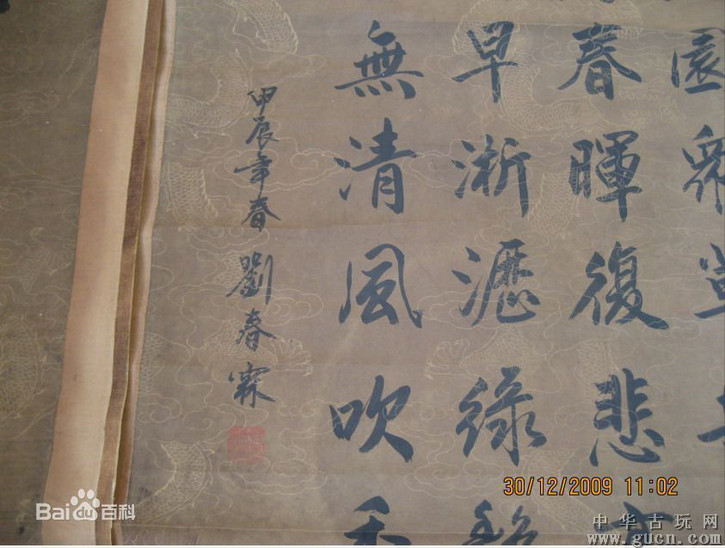 園
春暉復悲
早淅瀝綠
無清風吹
甲辰年春 劉春霖
30/12/2009 11:02
Bai百科
中华古玩网
www.gucn.com